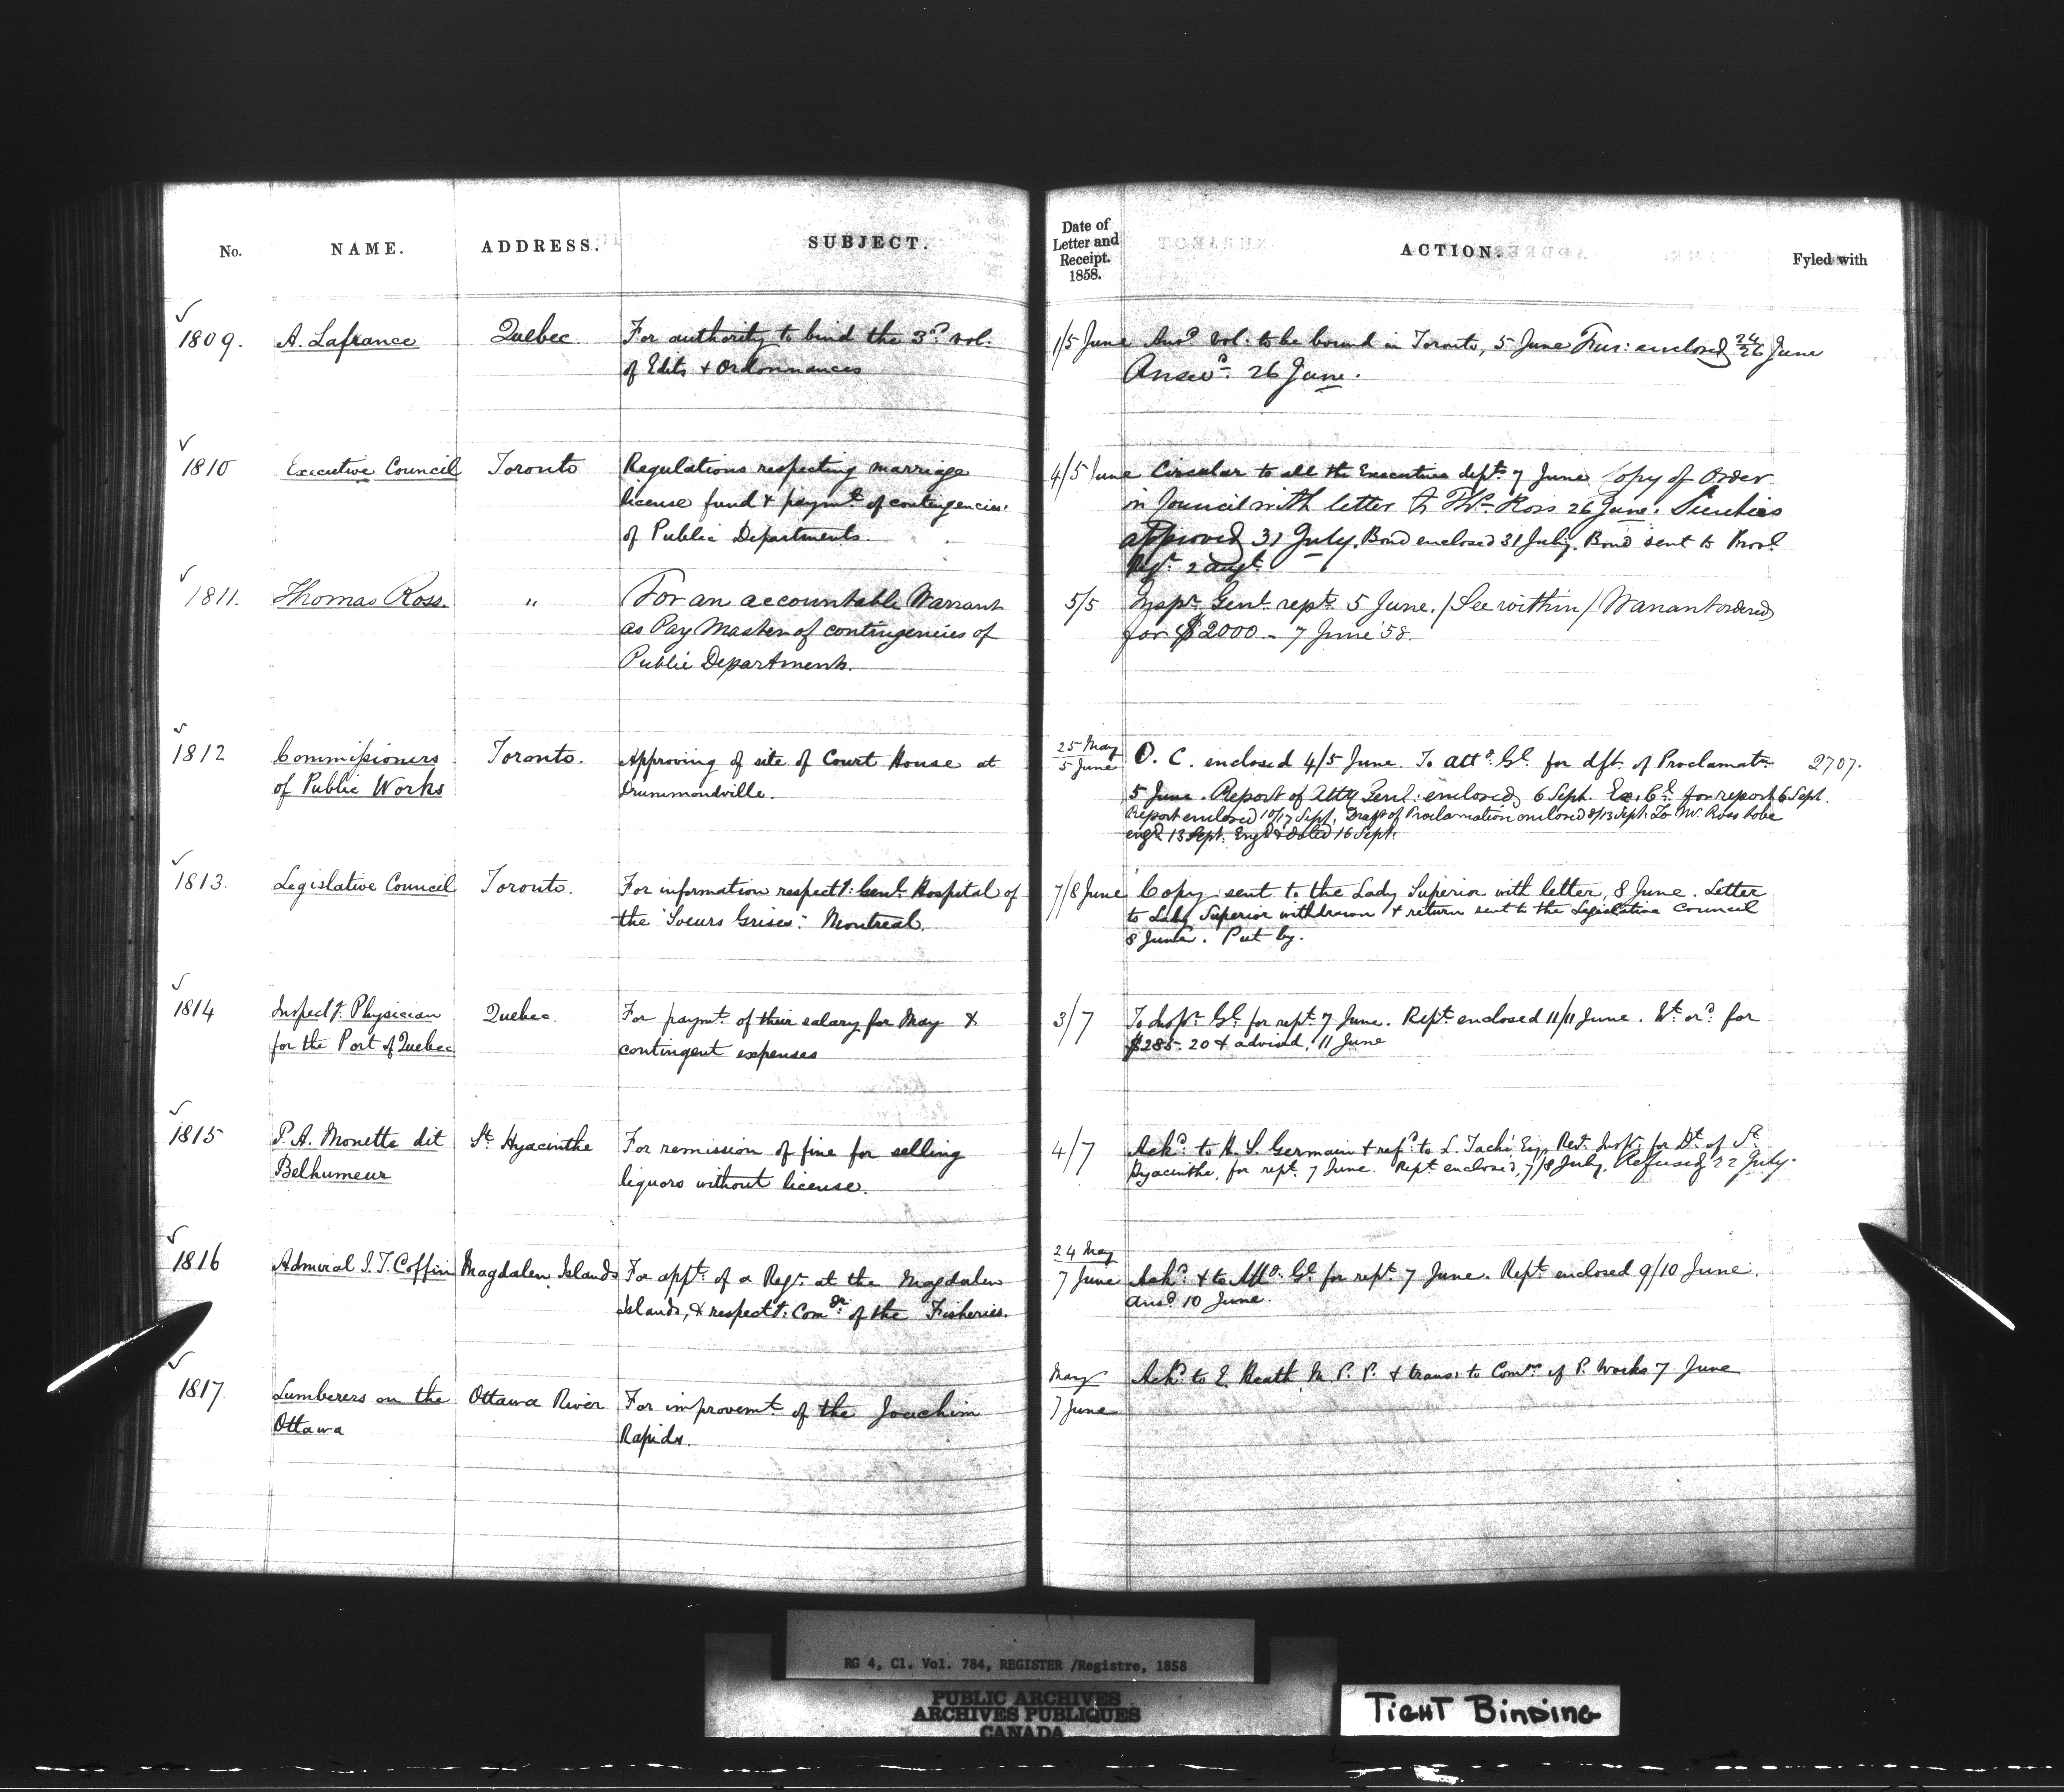 No. NAME. ADDRESS. SUBJECT. Date of Letter and Receipt. 1858. ACTION. Fyled with
1809. A. Lafrance Quebec For authority to bind the 3d. vol.
of Edits & Ordonnances
1/5 June Ansd. Vol: to be bound in Toronto, 5 June enclosed 24/26 June
Answd. 26 June.
1810 Executive Council Toronto Regulations respecting marriage
license fund & paymt. of contingencies
of Public Departments.
4/5 June Circular to all the Executive depts. 7 June. Copy of Order
in Council with letter to Ths. Ross 26 June. Sureties
approved 31 July. Bond enclosed 31 July. Bond sent to Provl.
Regr. 2 augt.
1811. Thomas Ross. " For an accountable Warrant
as Pay Master of contingencies of
Public Departments.
5/5 Inspr. Genl. rept. 5 June. /See within/ Warrant ordered
for $2000 - 7 June '58.
1812 Commissioners
of Public Works
Toronto. Approving of site of Court House at
Drummondville.
25 May
5 June
O. C. enclosed 4/5 June. To Atty. Gl. for dft. of Proclamatn. 2707.
5 June. Report of Atty Genl: enclosed 6 Sept. Ex. Cl. for report 6 Sept.
Report enclosed 10/17 Sept. Draft of Proclamation enclosed 8/13 Sept. To Mr. Ross to be
engd. 13 Sept. Engd. & dated 16 Sept.
1813. Legislative Council Toronto. For information respectg. Genl. Hospital of
the "Soeurs Grises": Montreal.
7/8 June Copy sent to the Lady Superior with letter, 8 June. Letter
to Lady Superior withdrawn & return sent to the Legislative Council
8 June. Put by.
1814 Inspectg. Physician
for the Port of Quebec
Quebec. For paymt. of their salary for May &
contingent expenses
3/7 To Inspr. Gl. for rept. 7 June. Rept. enclosed 11/11 June. Wt. ord. for
$285.20 & advised, 11 June
1815 P. A. Monette dit
Belhumeur
St. Hyacinthe For remission of fine for selling
liquors without license.
4/7 Ackd. to H. L. Germain & refd. to L. Taché Esq. Rev. Inspr. for Dt. of St.
Hyacinthe, for rept. 7 June. Rept. enclosed, 7/8 July. Refused 22 July.
1816 Admiral I. T. Coffin Magdalen Islands For appt. of a Regr. at the Magdalen
Islands, & respectg. Comr. of the Fisheries.
24 May
7 June
Ackd. & to Atty. Gl. for rept. 7 June. Rept. enclosed 9/10 June.
ansd. 10 June.
1817 Lumberers on the
Ottawa
Ottawa River For improvemt. of the Joachim
Rapids.
May
7 June
Ackd. to E. Heath M. P. P. & trans: to Comrs. of P. Works 7 June
RG 4, C1. Vol. 784, REGISTER /Registre, 1858
PUBLIC ARCHIVES
ARCHIVES PUBLIQUES
CANADA
TIGHT BINDING